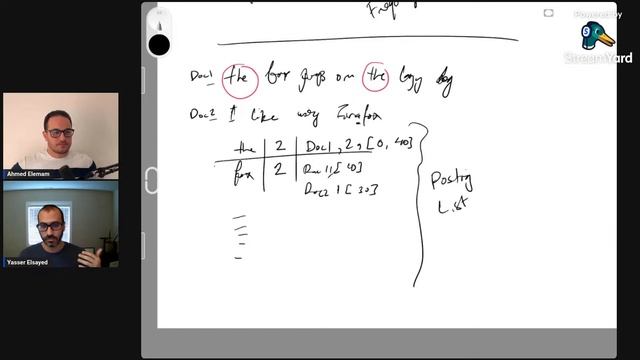 Powered by
StreamYard
Doc1 the fox jumps on the lazy dog
Doc2 I like my Firefox
the 2 Doc1, 2, [0, 400]
fox 2 Doc1 1 [40]
Doc2 1 [30]
Posting
List
Ahmed Elemam
Yasser Elsayed